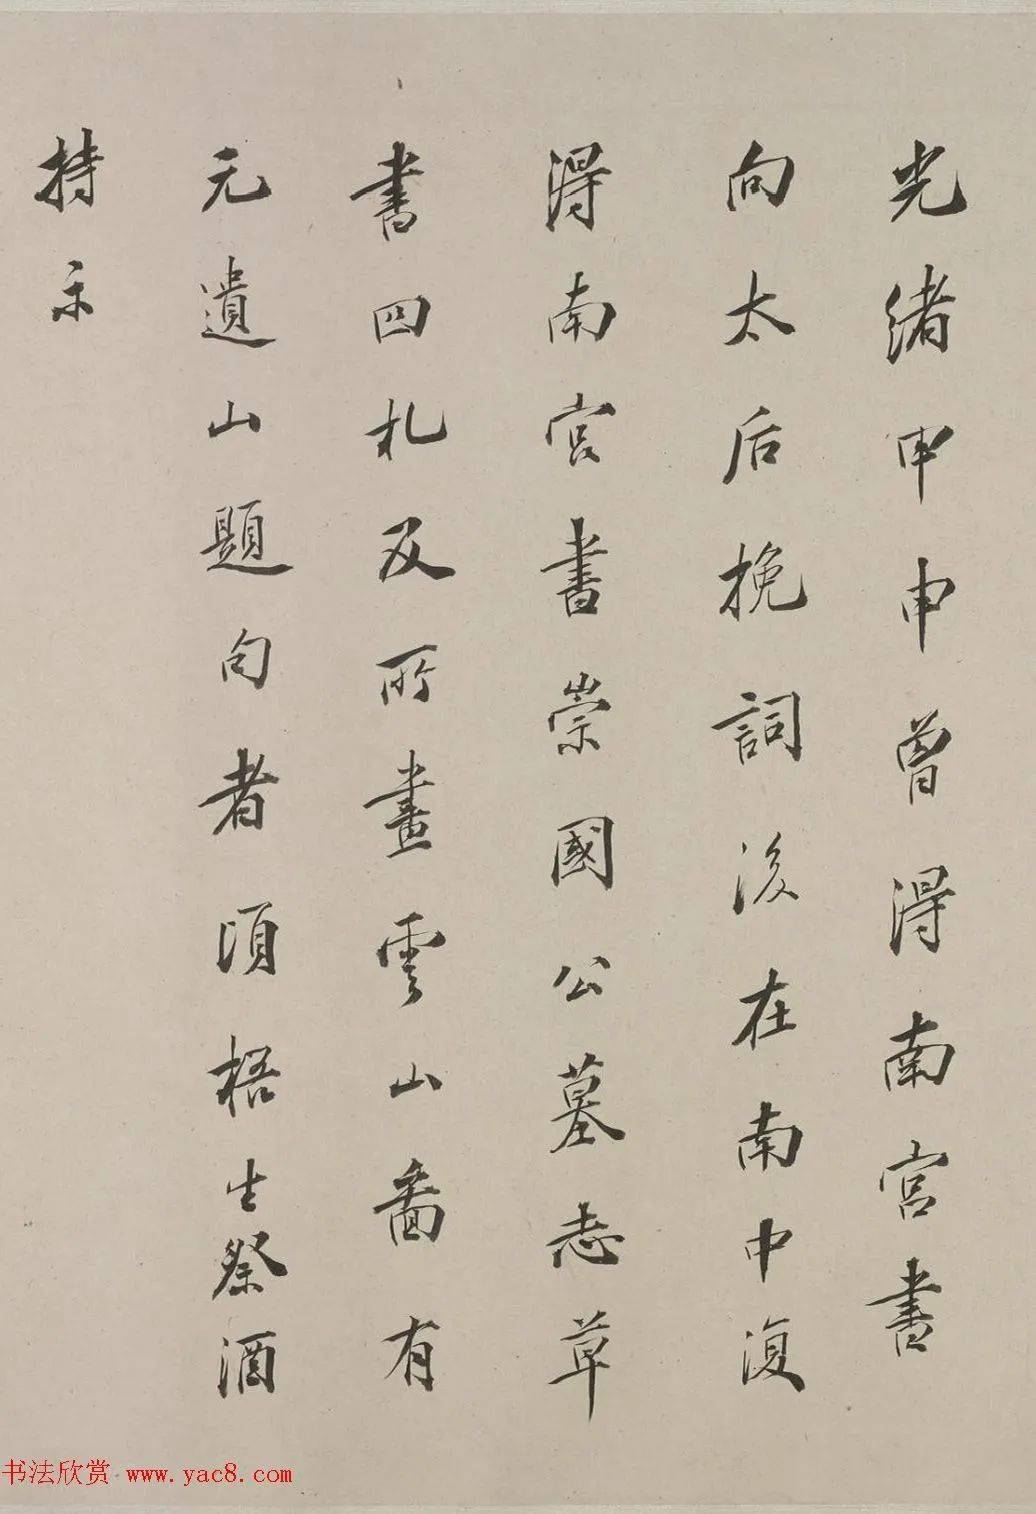 光緒甲申曾得南宮書
向太后挽詞後在南中復
得南宮書崇國公墓志草
書四札及所畫雲山圖有
元遺山題句者頃梧生祭酒
持示
书法欣赏 www.yac8.com